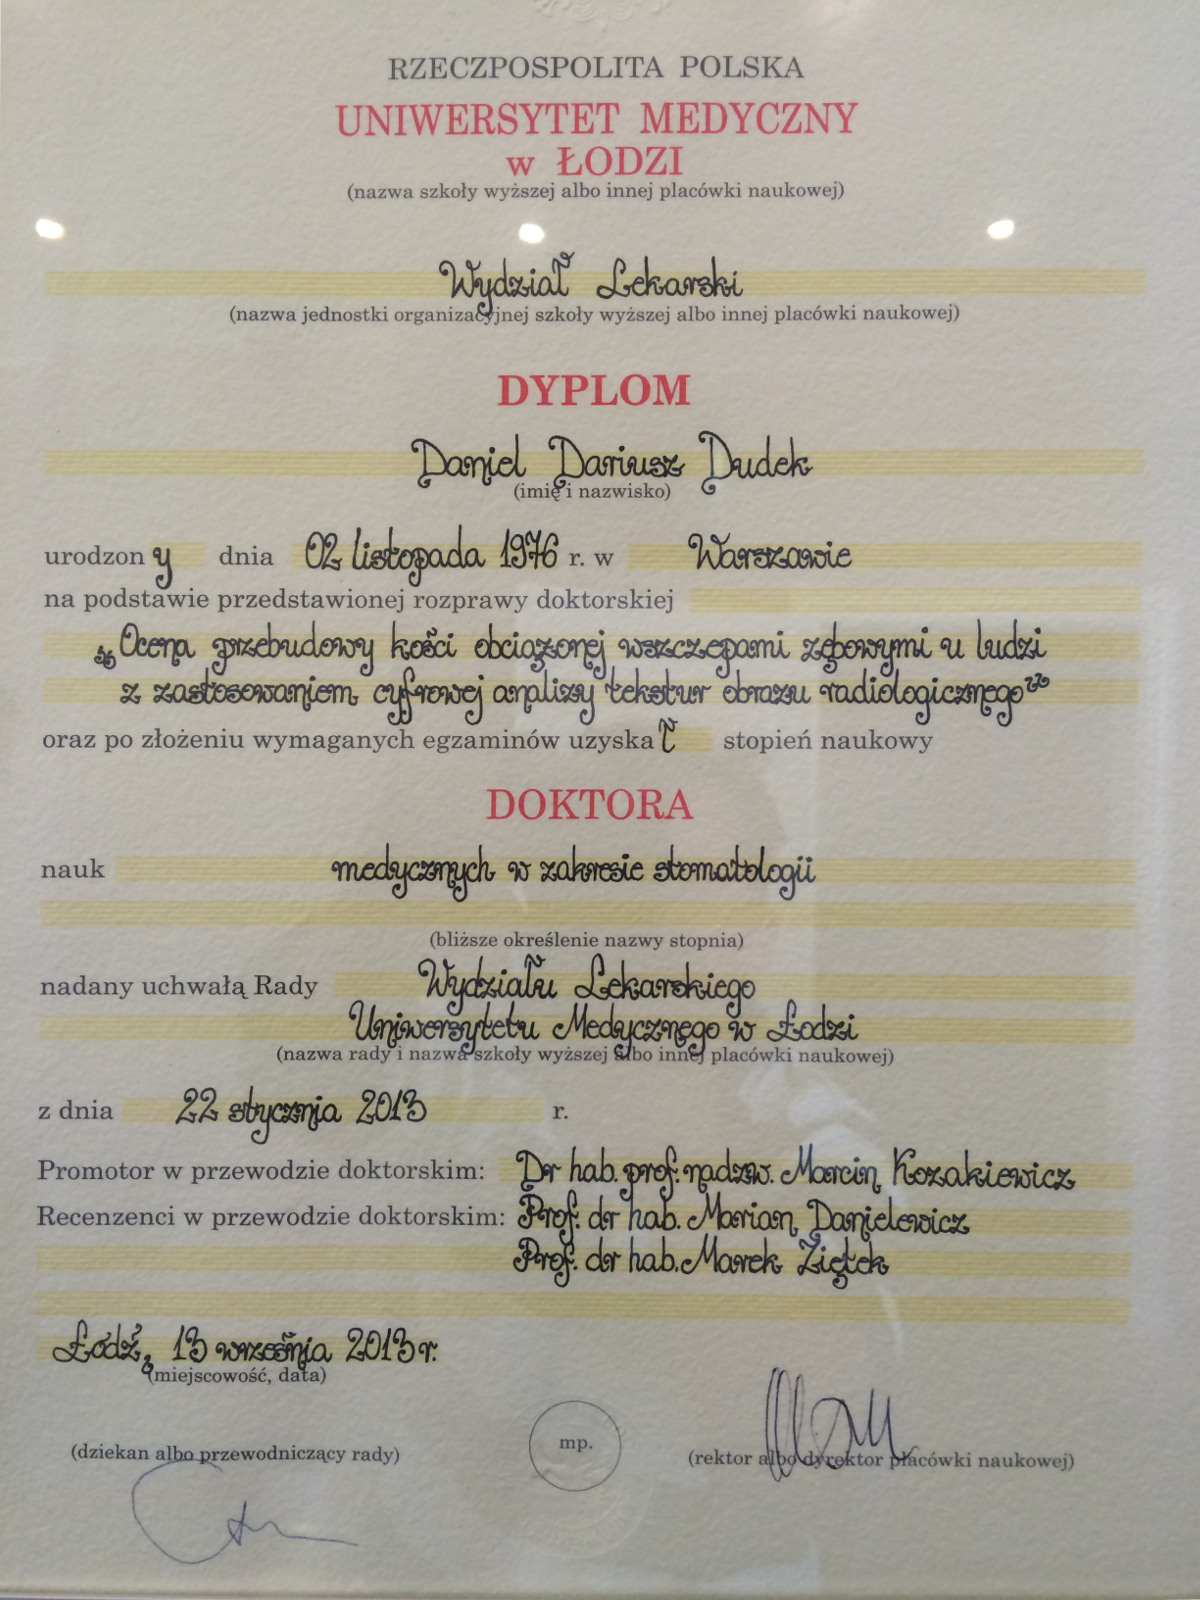 RZECZPOSPOLITA POLSKA
UNIWERSYTET MEDYCZNY
w ŁODZI
(nazwa szkoły wyższej albo innej placówki naukowej)
Wydział Lekarski
(nazwa jednostki organizacyjnej szkoły wyższej albo innej placówki naukowej)
DYPLOM
Daniel Dariusz Dudek
(imię i nazwisko)
urodzony dnia 02 listopada 1976 r. w Warszawie
na podstawie przedstawionej rozprawy doktorskiej
„Ocena przebudowy kości obciążonej wszczepami zębowymi u ludzi
z zastosowaniem cyfrowej analizy tekstur obrazu radiologicznego”
oraz po złożeniu wymaganych egzaminów uzyskał stopień naukowy
DOKTORA
nauk medycznych w zakresie stomatologii
(bliższe określenie nazwy stopnia)
nadany uchwałą Rady Wydziału Lekarskiego
Uniwersytetu Medycznego w Łodzi
(nazwa rady i nazwa szkoły wyższej albo innej placówki naukowej)
z dnia 22 stycznia 2013 r.
Promotor w przewodzie doktorskim: Dr hab. prof. nadzw. Marcin Kozakiewicz
Recenzenci w przewodzie doktorskim: Prof. dr hab. Marian Danielewicz
Prof. dr hab. Marek Ziętek
Łódź, 13 września 2013 r.
(miejscowość, data)
(dziekan albo przewodniczący rady)
mp.
(rektor albo dyrektor placówki naukowej)